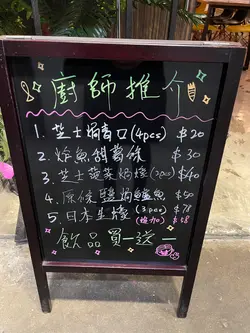 廚師推介
1. 芝士焗青口 (4pcs) $20
2. 炸魚甜薯條 $30
3. 芝士菠菜焗蠔 (3pcs) $40
4. 原條鹽焗鱸魚 $50
5. 日本生蠔 (3pcs) $78
飲品買一送一